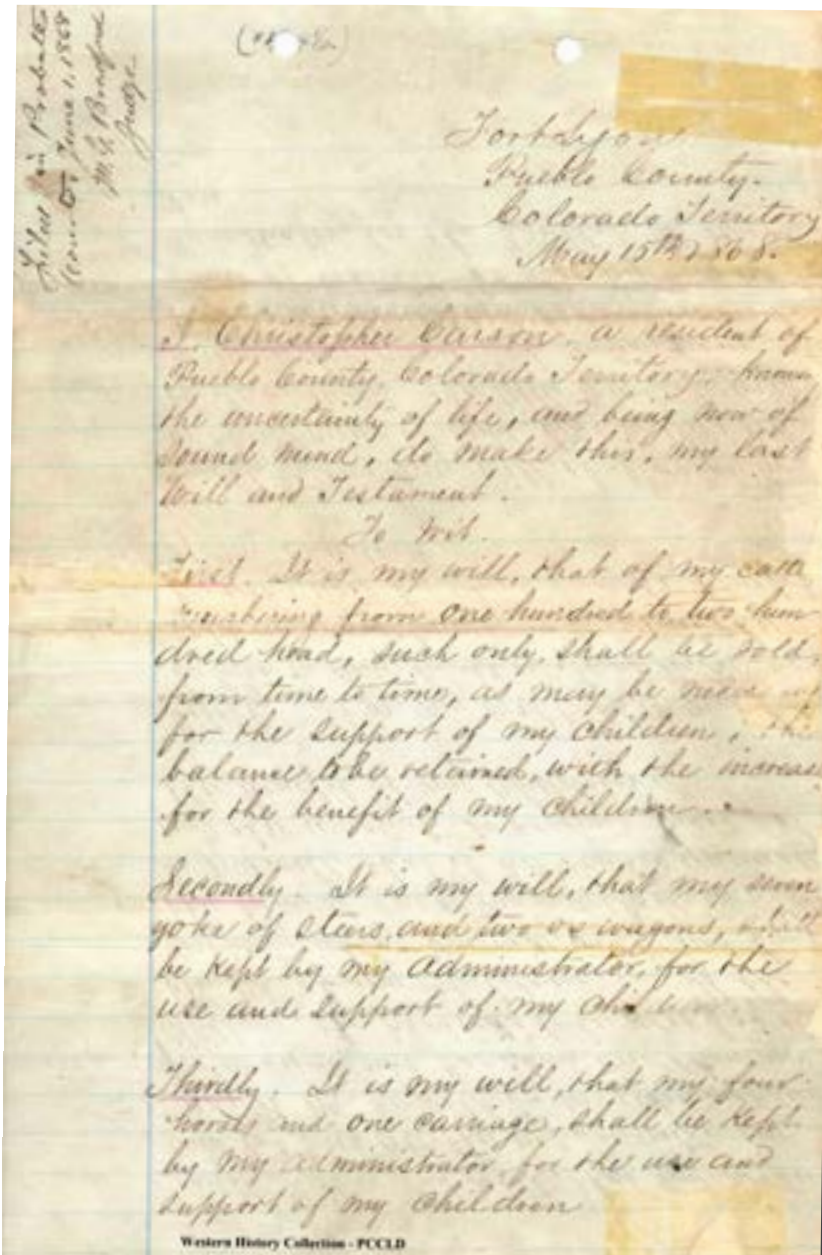 Filed in Probate
Court, June 1, 1868
M. G. Bradford
Judge
Fort Lyon
Pueblo County.
Colorado Territory
May 15th 1868.
I, Christopher Carson, a resident of
Pueblo County, Colorado Territory, know
the uncertainty of life, and being now of
sound mind, do make this, my last
Will and Testament.
To Wit.
First. It is my will, that of my cattle
numbering from one hundred to two hun
dred head, such only, shall be sold,
from time to time, as may be
for the support of my children, the
balance to be retained, with the increase
for the benefit of my children
Secondly. It is my will, that my seven
yoke of steers, and two ox wagons, shall
be kept by my administrator, for the
use and support of my children
Thirdly. It is my will, that my four
horses and one carriage, shall be kept
by my administrator, for the use and
support of my children
Western History Collection - PCCLD